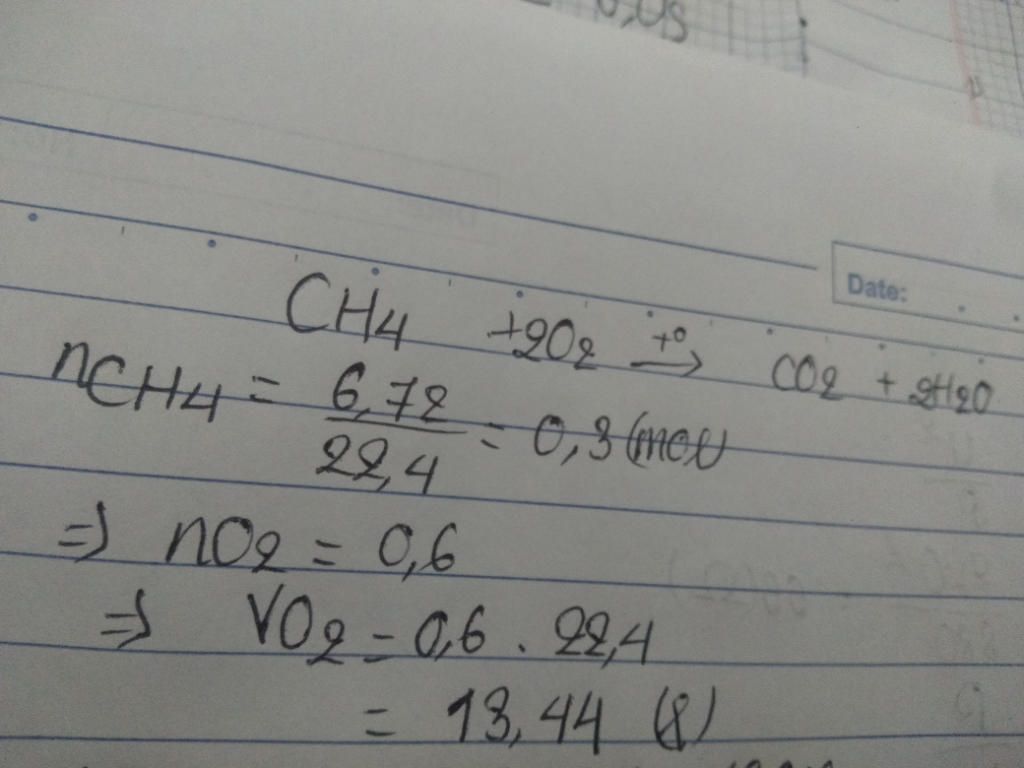 0,05
Date:
CH4 +2O2 t° → CO2 + 2H2O
nCH4 = 6,72 / 22,4 = 0,3 (mol)
⇒ nO2 = 0,6
⇒ VO2 = 0,6 . 22,4
= 13,44 (l)